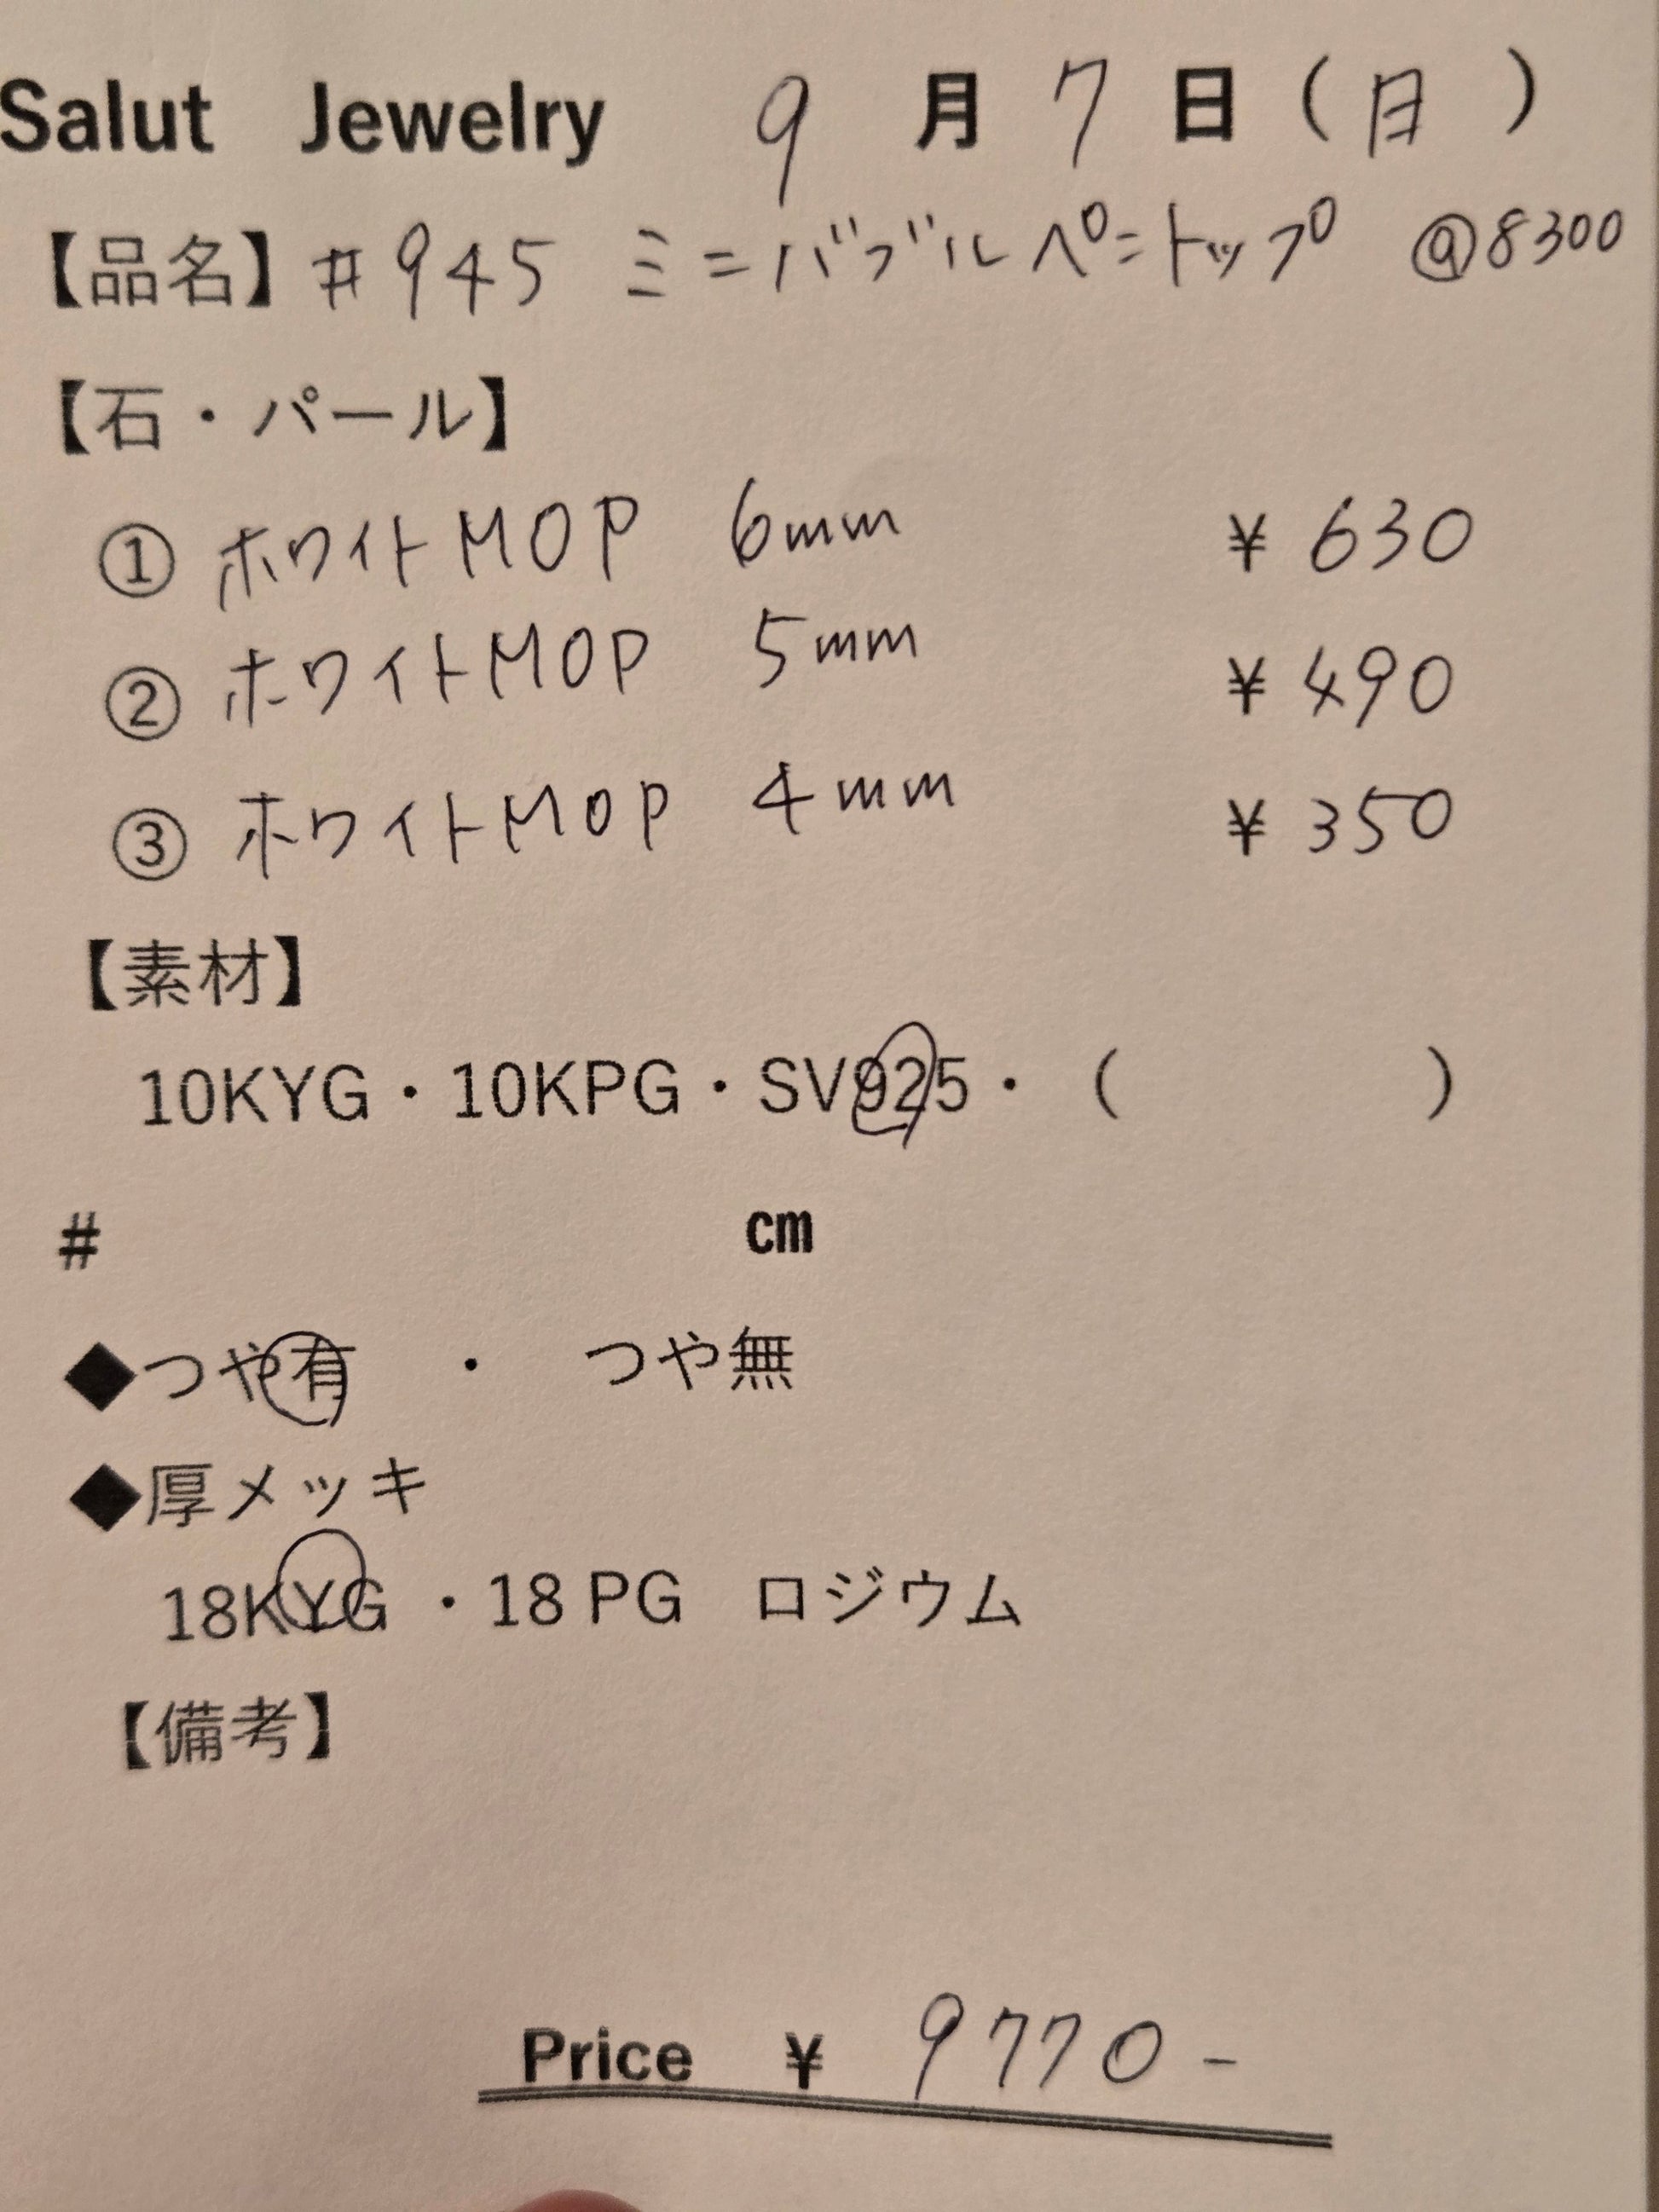 Salut Jewelry 9月7日(日)
【品名】#945 ミニバブルペントップ @8300
【石・パール】
① ホワイトMOP 6mm ¥630
② ホワイトMOP 5mm ¥490
③ ホワイトMOP 4mm ¥350
【素材】
10KYG・10KPG・SV925・( )
# cm
◆つや有 ・ つや無
◆厚メッキ
18KYG ・18 PG ロジウム
【備考】
Price ¥ 9770-